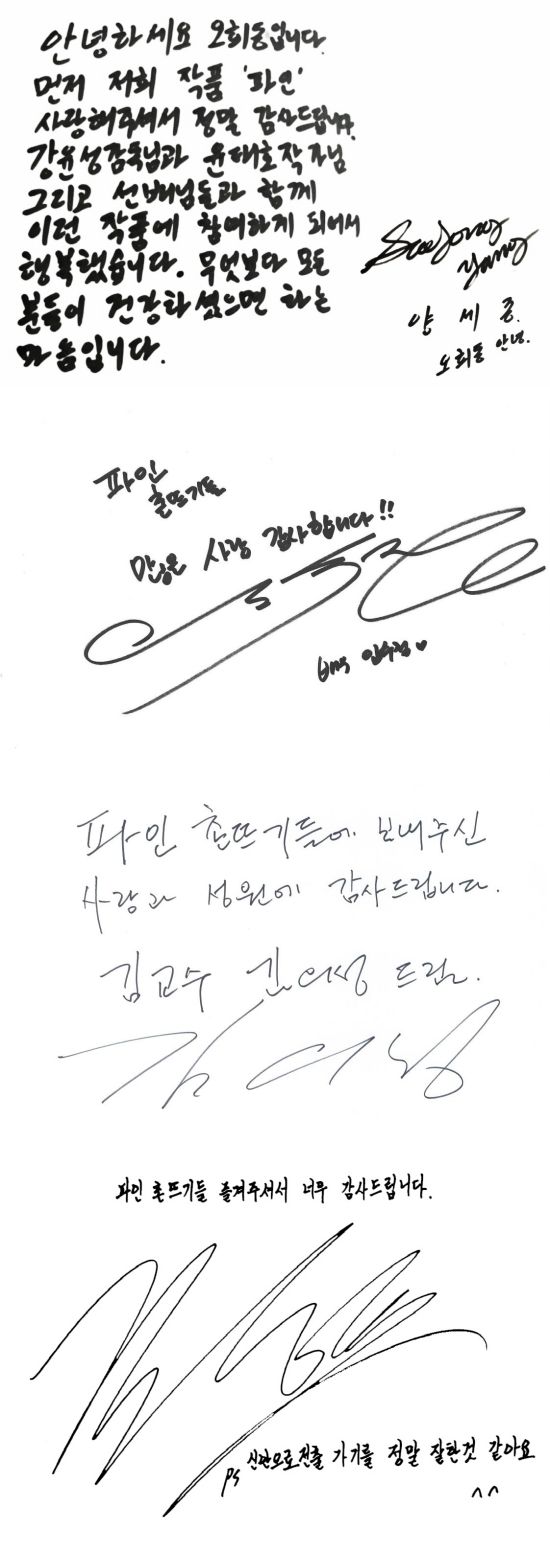 안녕하세요 오희동입니다.
먼저 저희 작품 '파인'
사랑해주셔서 정말 감사드립니다.
강윤성감독님과 윤태호작가님
그리고 선배님들과 함께
이런 작품에 참여하게 되어서
행복했습니다. 무엇보다 모든
분들이 건강하셨으면 하는
마음입니다.
SeeJong
Yang
양 세 종.
오희동 안녕.
파인
촌뜨기들
많은 사랑 감사합니다!!
임수정♥
파인 촌뜨기들에 보내주신
사랑과 성원에 감사드립니다.
김교수 김의성 드림.
김의성
파인 촌뜨기들 즐겨주셔서 너무 감사드립니다.
ps 신안으로전출 가기를 정말 잘한것 같아요
^^